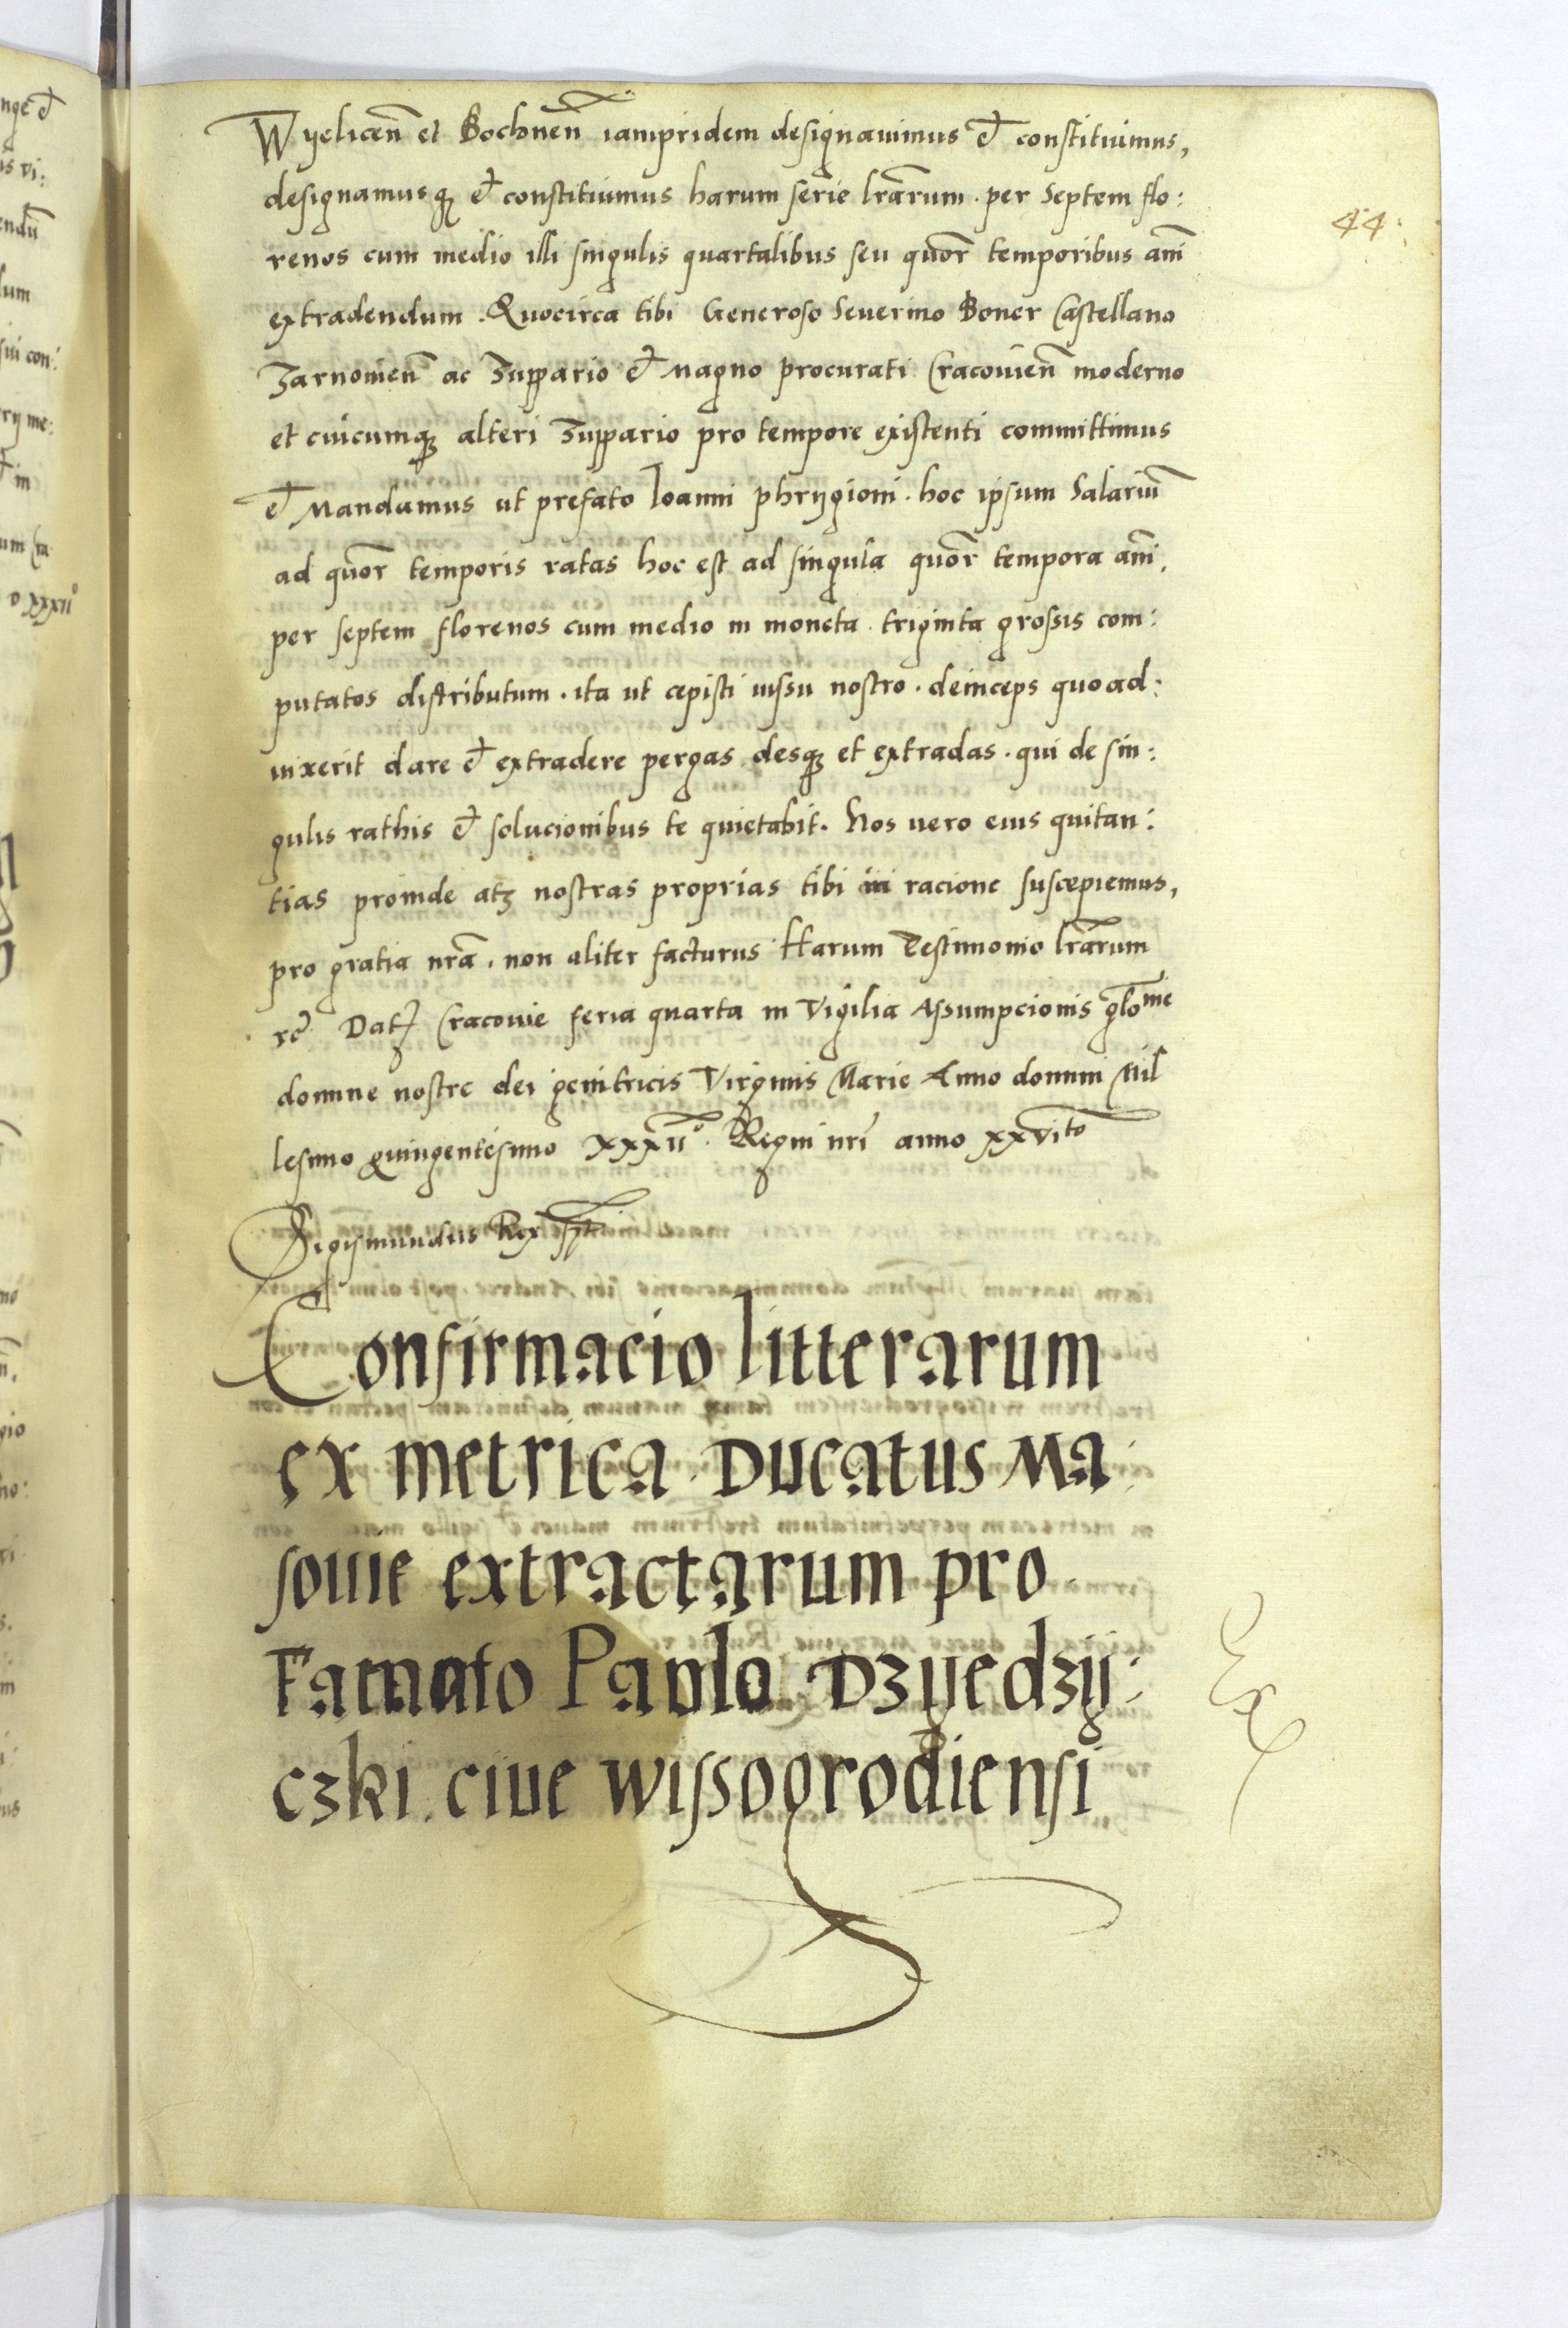 Wyelicen̄ et Bochnen̄ iampridem designauimus et constituimus,
designamusq̨ et constituimus harum serie l̄rarum . per Septem flo:
renos cum medio illi singulis quartalibus seu quōr temporibus anī
extradendum . Quocirca tibi Generoso Seuerino Boner Castellano
Zarnouien̄ ac Zuppario et Magno procurati Cracouien̄ moderno
et cuicumq̨ alteri Zuppario pro tempore existenti committimus
et Mandamus ut prefato Ioanni phrygioni . hoc ipsum Salariū
ad quōr temporis ratas hoc est ad singula quōr tempora anī,
per septem florenos cum medio in moneta . triginta grossis com:
putatos distributum . ita ut cepisti iussu nostro . deinceps quoad:
uixerit dare et extradere pergas desq̨ et extradas . qui de sin:
gulis rathis et solucionibus te quietabit. Nos uero eius quitan:
tias proinde atq̨ nostras proprias tibi in racione suscepiemus,
pro gratia nr̄a . non aliter facturus Harum Testimonio l̄rarum
rc̄ Datȝ Cracouie feria quarta in Vigilia Assumpcionis glōme
domine nostre dei genitricis Virginis Marie Anno domini Mil
lesimo quingentesimo xxxii°. Regni nr̄i anno xxvito
Sigismundus Rex s̄st
Confirmacio litterarum
ex metrica . Ducatus Ma:
souie extractarum pro.
Famato Paulo Dzyedzy:
czki . ciue wissogrodiensi
44